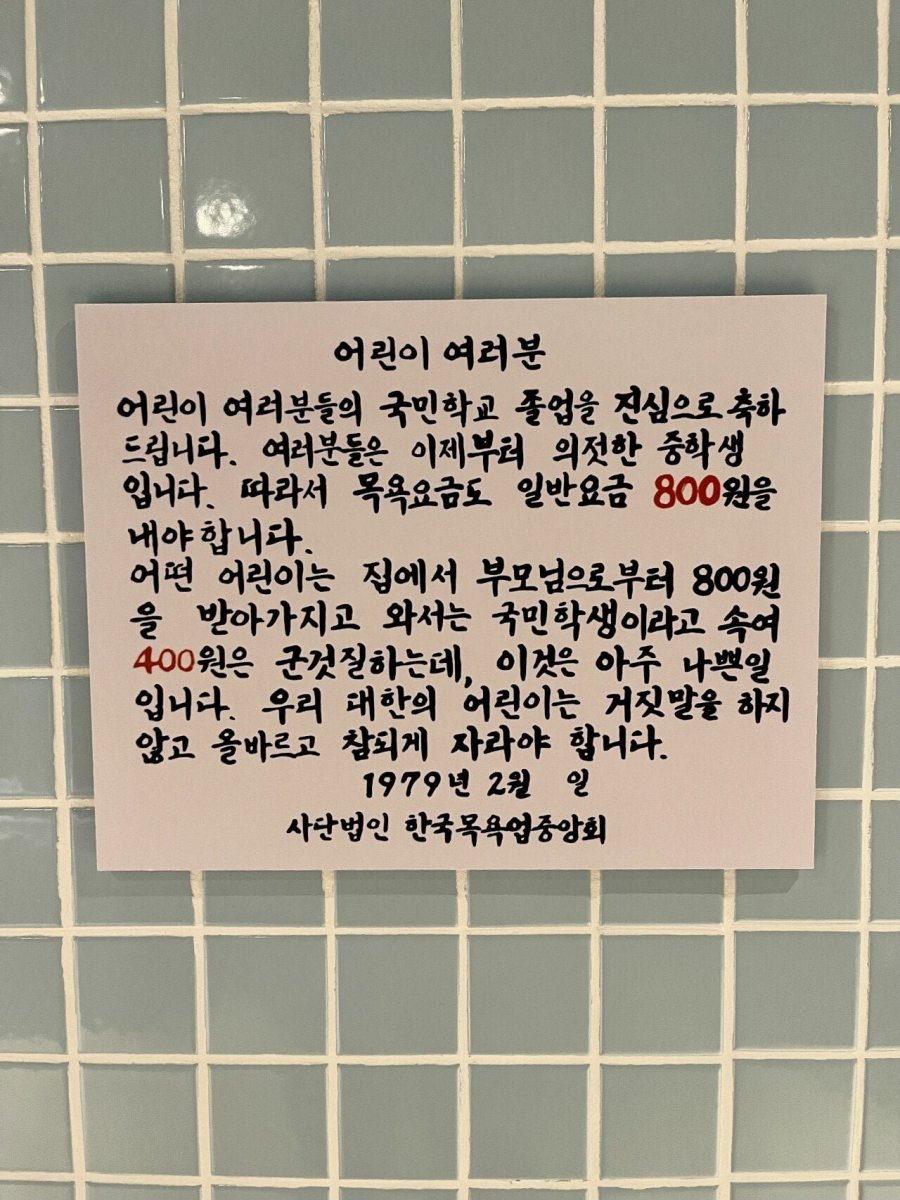 어린이 여러분
어린이 여러분들의 국민학교 졸업을 진심으로 축하
드립니다. 여러분들은 이제부터 의젓한 중학생
입니다. 따라서 목욕요금도 일반요금 800원을
내야합니다.
어떤 어린이는 집에서 부모님으로부터 800원
을 받아가지고 와서는 국민학생이라고 속여
400원은 군것질하는데, 이것은 아주 나쁜일
입니다. 우리 대한의 어린이는 거짓말을 하지
않고 올바르고 참되게 자라야 합니다.
1979년 2월 일
사단법인 한국목욕업중앙회